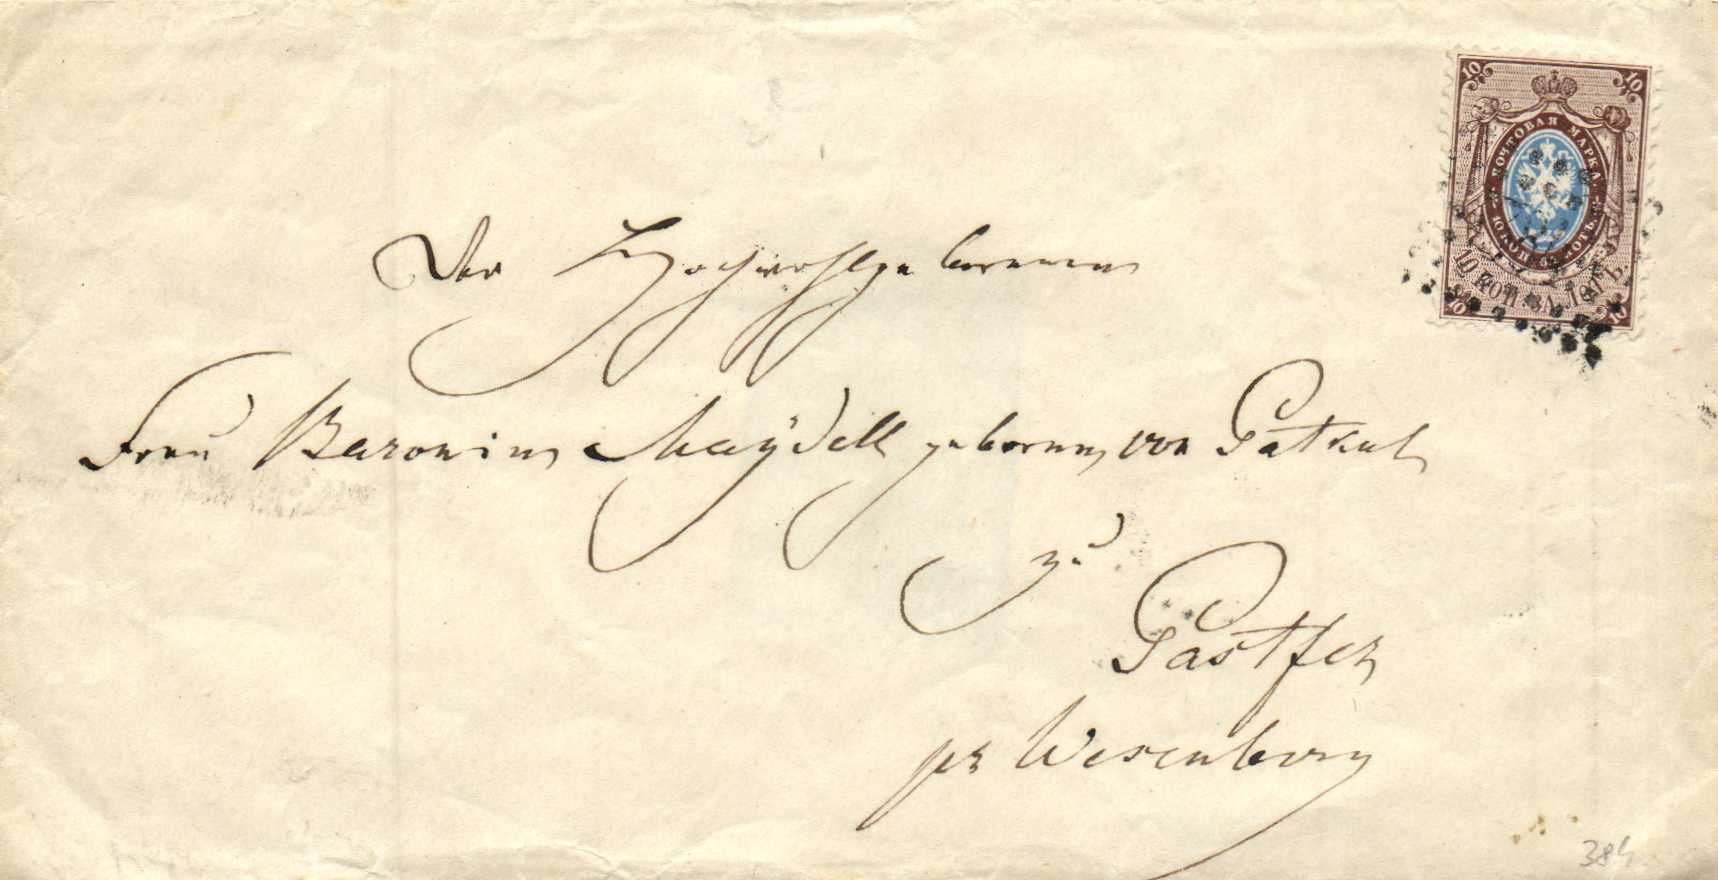 10 10
ПОЧТОВАЯ МАРКА
10 КОП. ЗА ЛОТЪ.
10 КОП. ЗА ЛОТЪ.
10 10
Der Hochwohlgeborenen
Frau Baronin Maÿdell geboren von Patkul
zu
Pastfer
pr Wesenberg
384